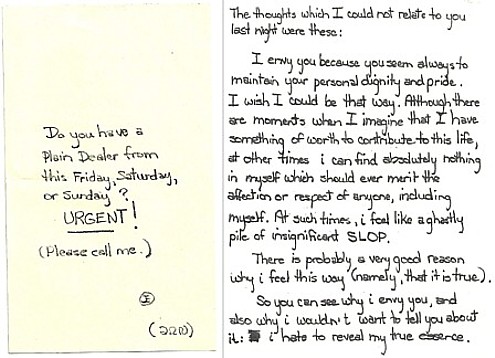 Do you have a
Plain Dealer from
this Friday, Saturday,
or Sunday?
URGENT!
(Please call me.)
The thoughts which I could not relate to you
last night were these:
I envy you because you seem always to
maintain your personal dignity and pride.
I wish I could be that way. Although there
are moments when I imagine that I have
something of worth to contribute to this life,
at other times i can find absolutely nothing
in myself which should ever merit the
affection or respect of anyone, including
myself. At such times, i feel like a ghastly
pile of insignificant SLOP.
There is probably a very good reason
why i feel this way (namely, that it is true).
So you can see why i envy you, and
also why i wouldn't want to tell you about
it: i hate to reveal my true essence.